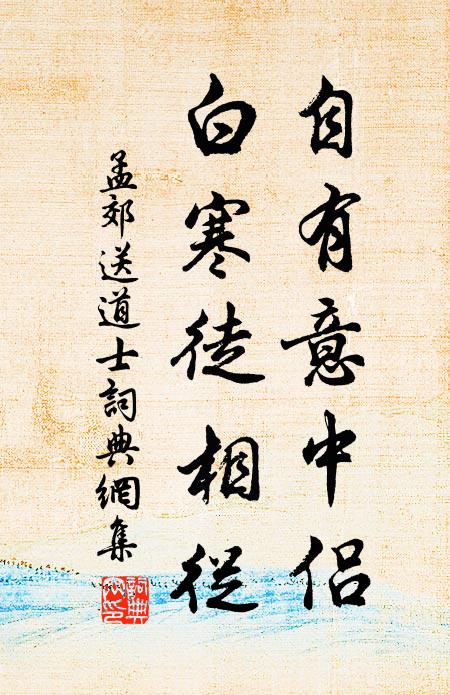 自有意中侣
白寒徒相從
孟郊送道士詞典網集